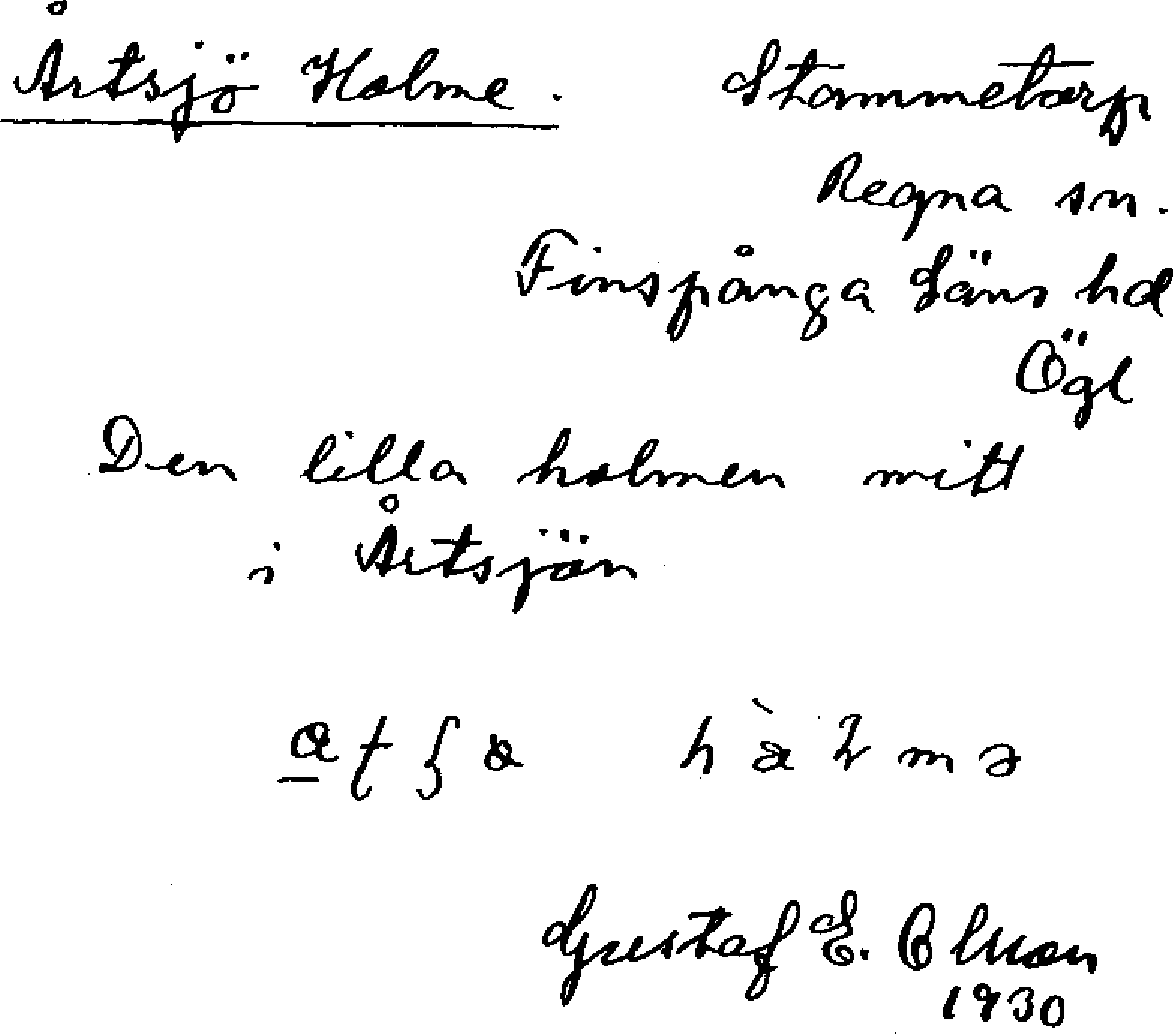 Årtsjö Holme. Stammetorp
Regna sn.
Finspånga Läns hd
Ögl
Den lilla holmen mitt
i Årtsjön
Gustaf E. Olsson
1930